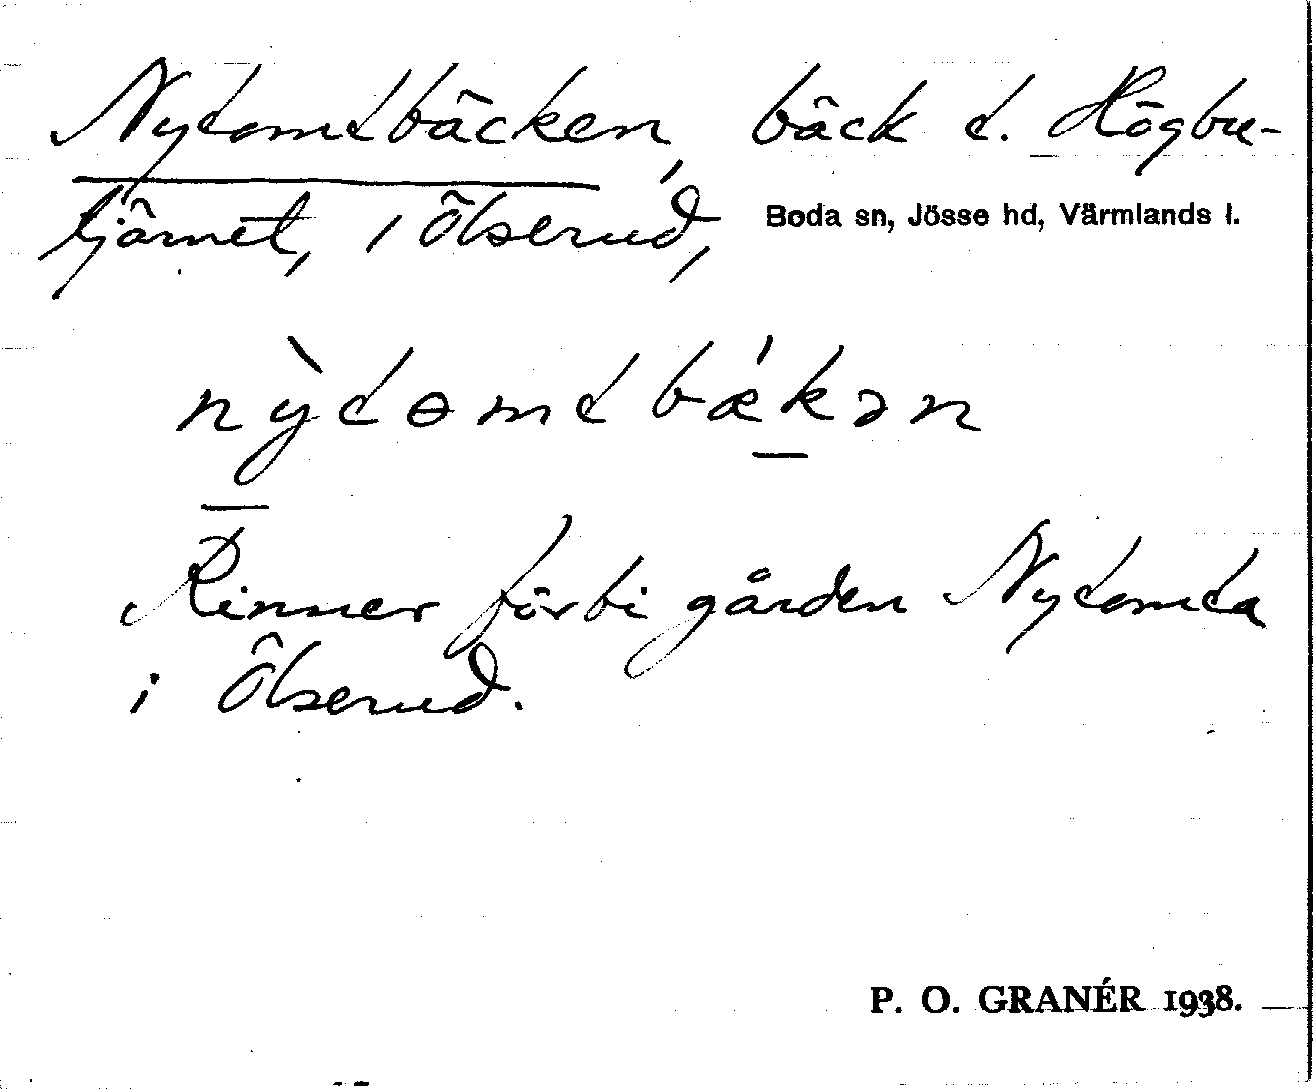 Nytomtbäcken, bäck t. Högbu-
tjärnet, i Ölserud,
Boda sn, Jösse hd, Värmlands l.
nỳtɵmtbǽkən
Rinner förbi gården Nytomta
i Ölserud.
P. O. GRANÉR 1938.